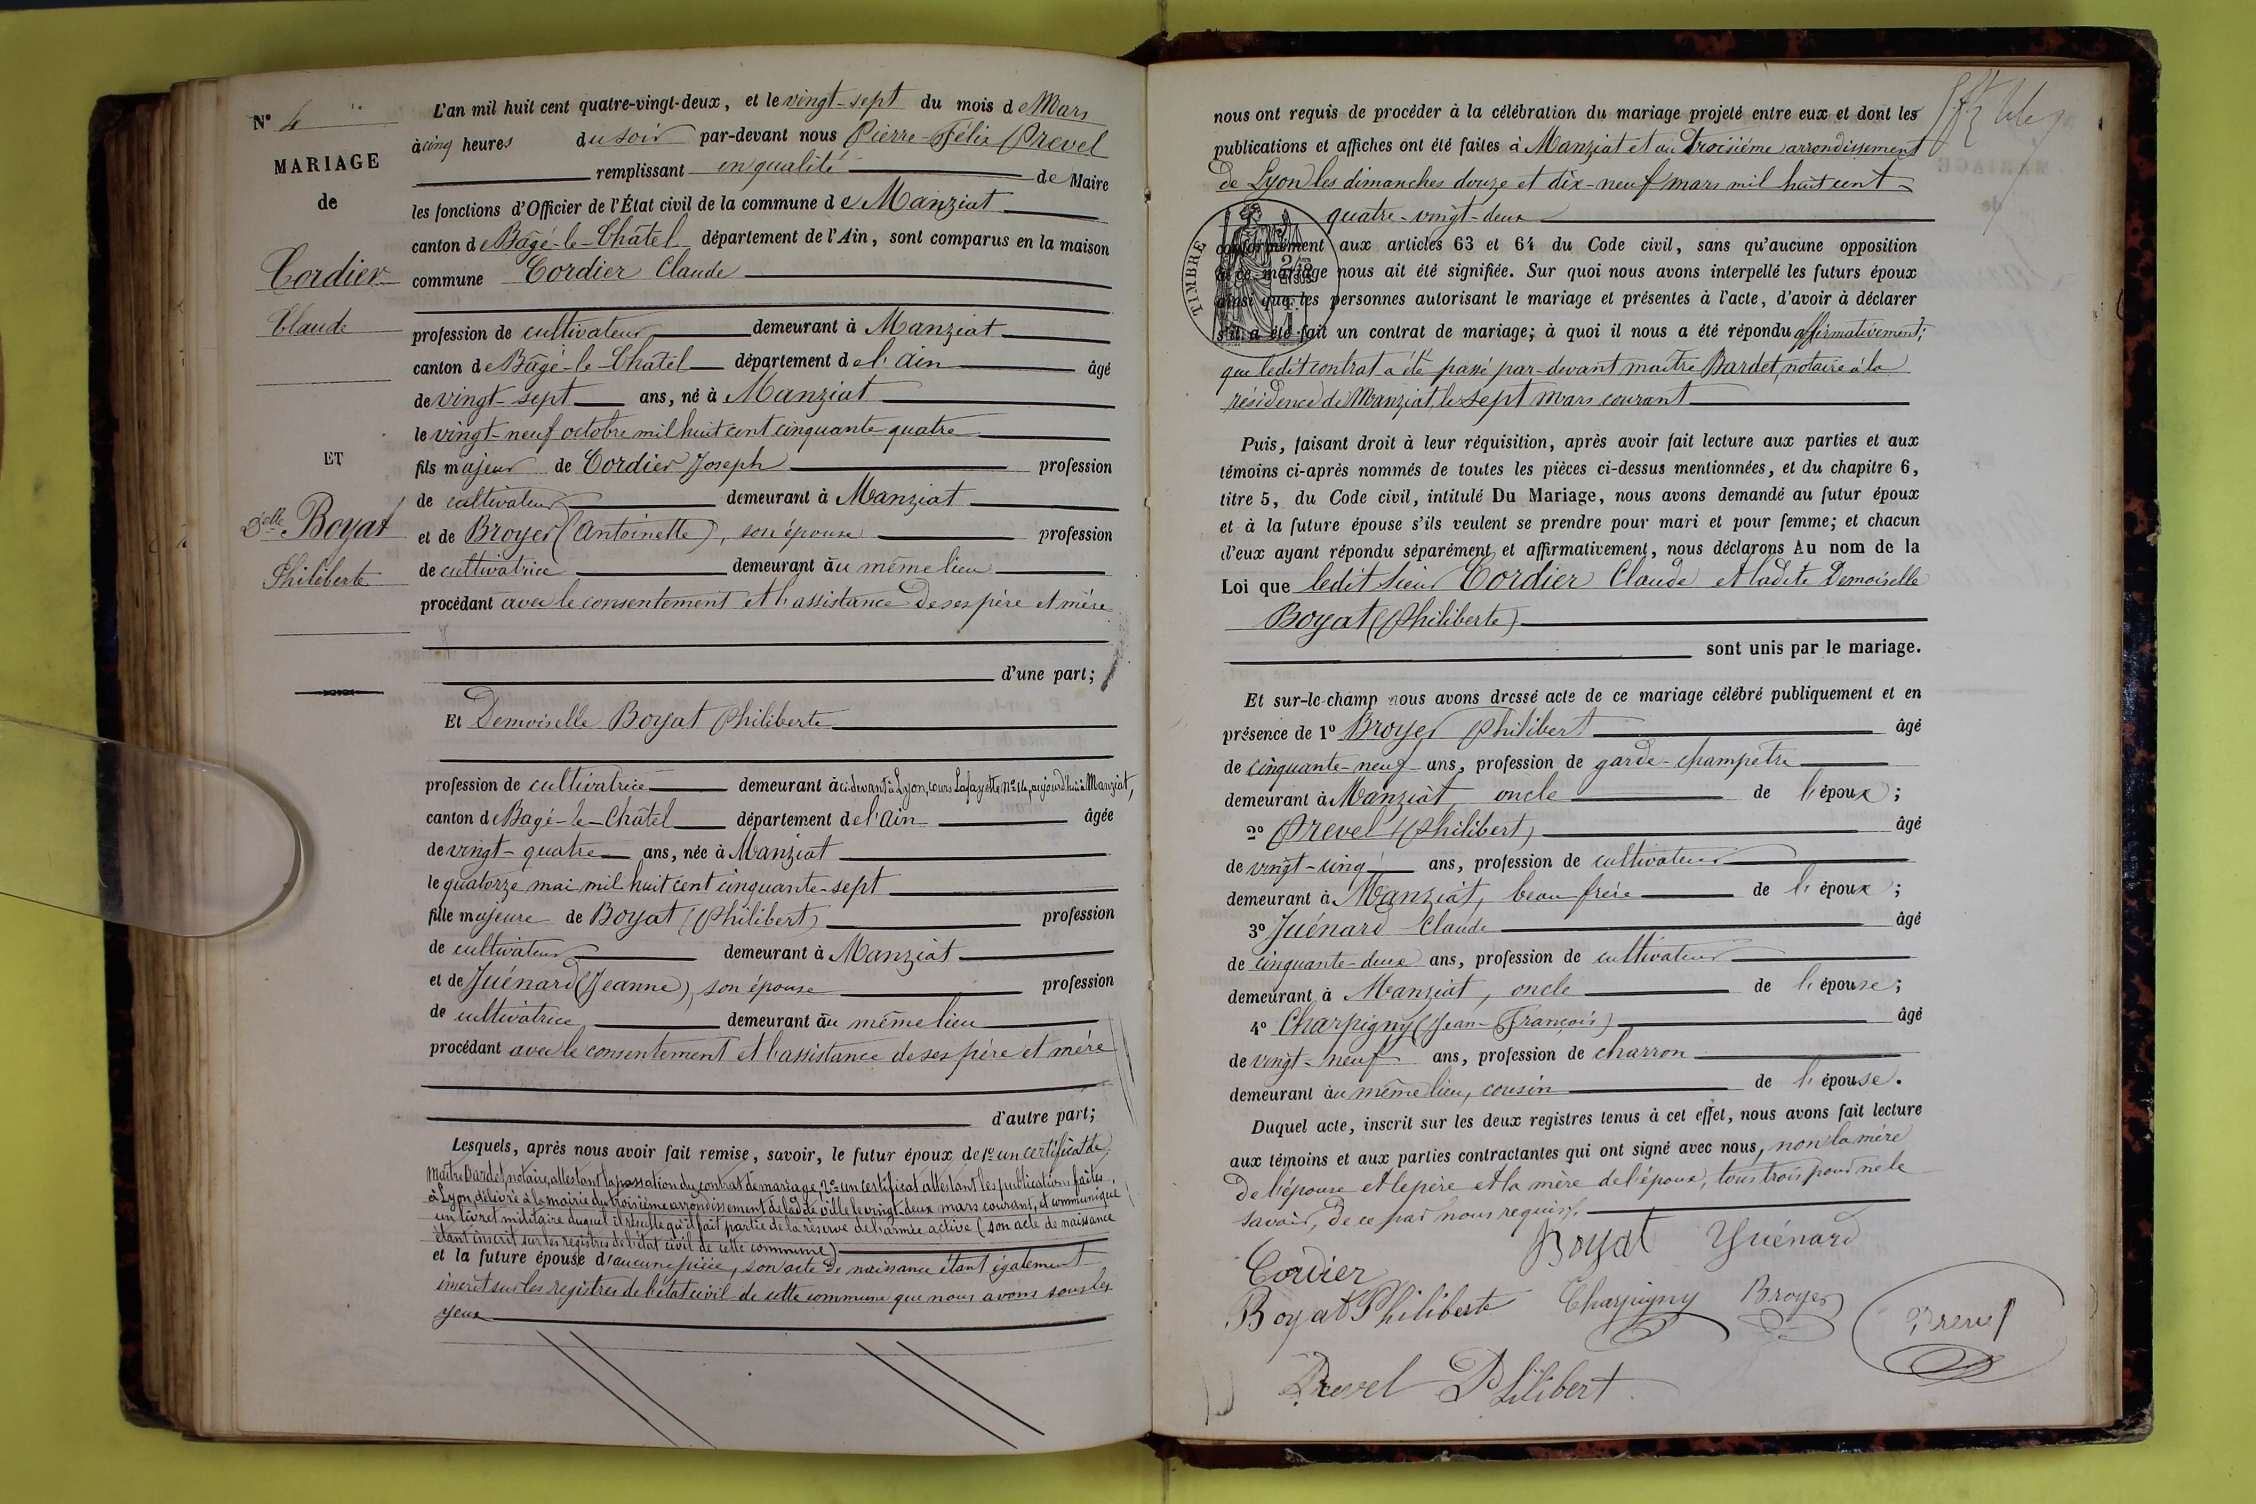 N° 4
MARIAGE
de
Cordier
Claude
ET
Delle Boyat
Philiberte
L'an mil huit cent quatre-vingt-deux, et le vingt-sept du mois de Mars
à cinq heures du soir par-devant nous Pierre-Félix Prevel
remplissant en qualité de Maire
les fonctions d'Officier de l'État civil de la commune de Manziat
canton de Bâgé-le-Châtel département de l'Ain, sont comparus en la maison
commune Cordier Claude
profession de cultivateur demeurant à Manziat
canton de Bâgé-le-Châtel département de l'Ain âgé
de vingt-sept ans, né à Manziat
le vingt-neuf octobre mil huit cent cinquante-quatre
fils majeur de Cordier Joseph profession
de cultivateur demeurant à Manziat
et de Broyer (Antoinette), son épouse profession
de cultivatrice demeurant au même lieu
procédant avec le consentement et l'assistance de ses père et mère
d'une part;
Et Demoiselle Boyat Philiberte
profession de cultivatrice demeurant à ci-devant à Lyon, cours Lafayette n° 14, aujourd'hui à Manziat,
canton de Bagé-le-Châtel département de l'Ain âgée
de vingt-quatre ans, née à Manziat
le quatorze mai mil huit cent cinquante-sept
fille majeure de Boyat (Philibert) profession
de cultivateur demeurant à Manziat
et de Juénard (Jeanne), son épouse profession
de cultivatrice demeurant au même lieu
procédant avec le consentement et l'assistance de ses père et mère
d'autre part;
Lesquels, après nous avoir fait remise, savoir, le futur époux de 1° un certificat de
Maître Bardet, notaire, attestant la passation du contrat de mariage, 2° un certificat attestant les publications faites
à Lyon, délivré à la mairie du troisième arrondissement de ladite ville le vingt-deux mars courant, et communiqué
un livret militaire duquel il résulte qu'il fait partie de la réserve de l'armée active (son acte de naissance
étant inscrit sur les registres de l'état civil de cette commune)
et la future épouse d'aucune pièce, son acte de naissance étant également
inscrit sur les registres de l'état civil de cette commune que nous avons sous les
yeux
nous ont requis de procéder à la célébration du mariage projeté entre eux et dont les
publications et affiches ont été faites à Manziat et au Troisième arrondissement
de Lyon les dimanches douze et dix-neuf mars mil huit cent
quatre-vingt-deux
TIMBRE
conformément aux articles 63 et 64 du Code civil, sans qu'aucune opposition
à ce mariage nous ait été signifiée. Sur quoi nous avons interpellé les futurs époux
ainsi que les personnes autorisant le mariage et présentes à l'acte, d'avoir à déclarer
s'il a été fait un contrat de mariage; à quoi il nous a été répondu affirmativement;
que ledit contrat a été passé par-devant maître Bardet, notaire à la
résidence de Manziat, le sept mars courant
Puis, faisant droit à leur réquisition, après avoir fait lecture aux parties et aux
témoins ci-après nommés de toutes les pièces ci-dessus mentionnées, et du chapitre 6,
titre 5, du Code civil, intitulé Du Mariage, nous avons demandé au futur époux
et à la future épouse s'ils veulent se prendre pour mari et pour femme; et chacun
d'eux ayant répondu séparément et affirmativement, nous déclarons Au nom de la
Loi que ledit sieur Cordier Claude et ladite Demoiselle
Boyat (Philiberte)
sont unis par le mariage.
Et sur-le-champ nous avons dressé acte de ce mariage célébré publiquement et en
présence de 1° Broyer Philibert âgé
de cinquante-neuf ans, profession de garde-champêtre
demeurant à Manziat oncle de l'époux;
2° Prevel (Philibert) âgé
de vingt-cinq ans, profession de cultivateur
demeurant à Manziat, beau-frère de l'époux;
3° Juénard Claude âgé
de cinquante-deux ans, profession de cultivateur
demeurant à Manziat, oncle de l'épouse;
4° Charpigny (Jean-François) âgé
de vingt-neuf ans, profession de charron
demeurant au même lieu, cousin de l'épouse.
Duquel acte, inscrit sur les deux registres tenus à cet effet, nous avons fait lecture
aux témoins et aux parties contractantes qui ont signé avec nous, non la mère
de l'épouse et le père et la mère de l'époux, tous trois pour ne le
savoir, de ce par nous requis.
Boyat Juénard
Cordier
Boyat Philiberte Charpigny Broyer Prevel
Prevel Philibert